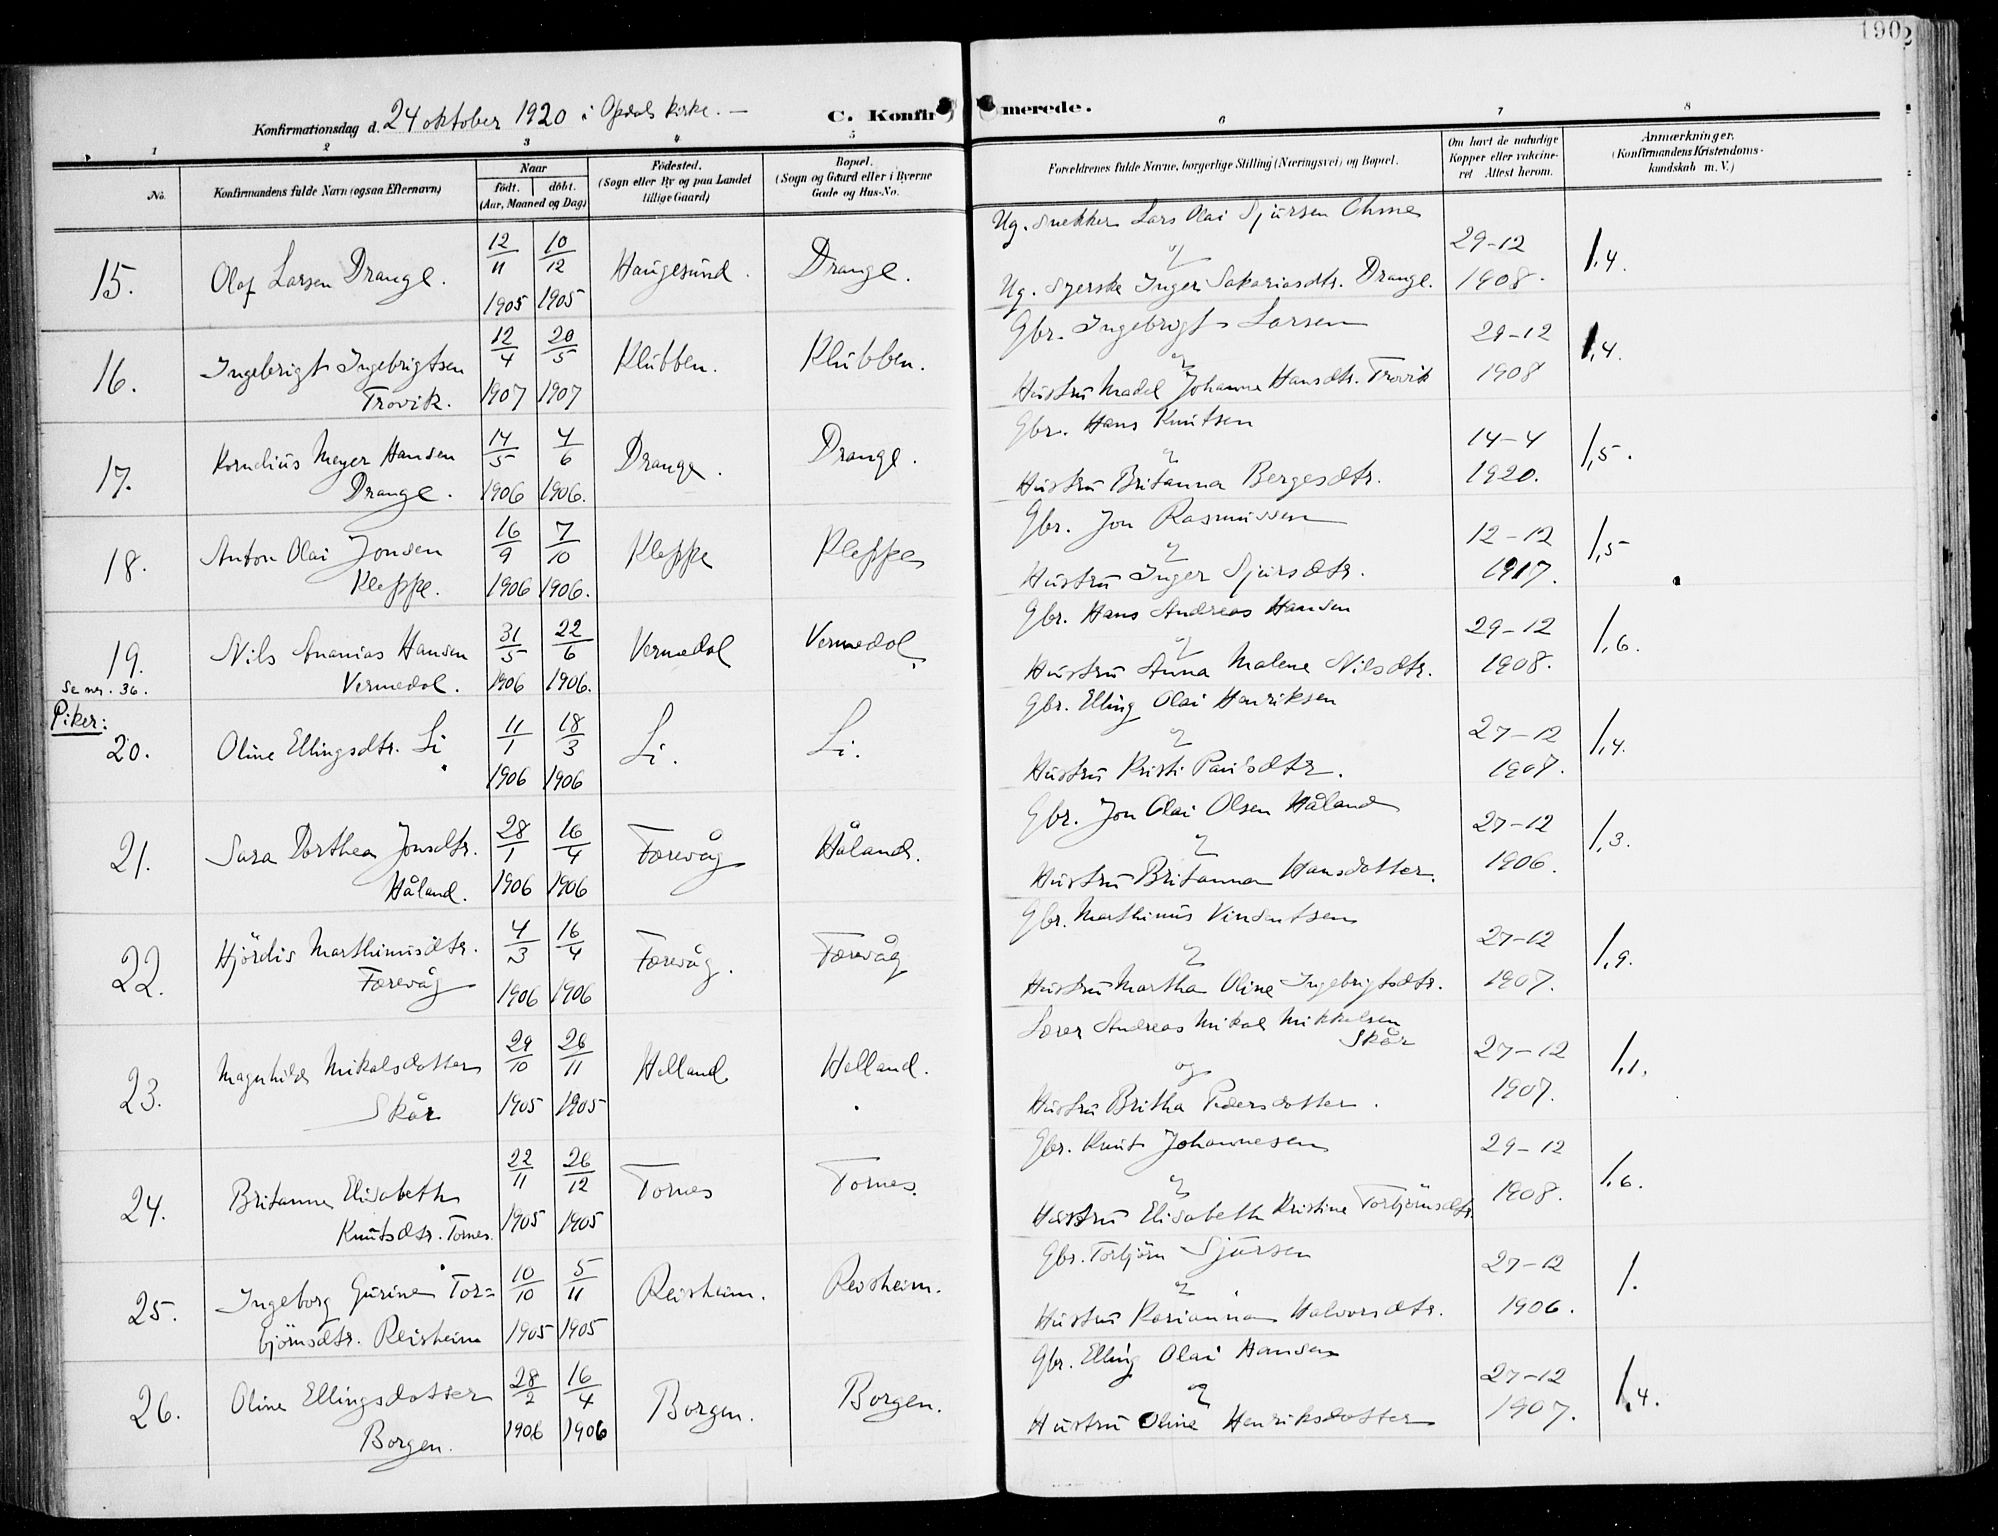 190
2
Konfirmationsdag d. 24 oktober 1920 i Opdal kirke. –
C. Konfirmerede.
1 2 3 4 5 6 7 8
No.
Konfirmandens fulde Navn (ogsaa Efternavn)
Naar
født. døbt.
(Aar, Maaned og Dag)
Fødested.
(Sogn eller By og paa Landet
tillige Gaard)
Bopæl.
(Sogn og Gaard eller i Byerne
Gade og Hus-No.
Forældrenes fulde Navne, borgerlige Stilling (Næringsvei) og Bopæl.
Om havt de naturlige
Kopper eller vakcine-
ret Attest herom.
Anmærkninger.
(Konfirmandens Kristendoms-
kundskab m. V.)
Ug. Snekker Lars Olai Sjursen Ohme
15. Olaf Larsen Drange. 12/11 1905 10/12 1905 Haugesund. Drange. og 29-12 1908. 1,4.
Ug. Syerske Inger Sakariasdtr. Drange.
Gbr. Ingebrigt Larsen
16. Ingebrigt Ingebrigtsen 12/4 20/5 Klubben. Klubben. og 29-12 1,4.
Trovik. 1907 1907 Hustru Madel Johanne Hansdtr. Trovik 1908
Gbr. Hans Knutsen
17. Kornelius Meyer Hansen 14/5 4/6 Drange. Drange. og 14-4 1,5.
Drange. 1906 1906. Hustru Britanna Bergesdtr. 1920.
Gbr. Jon Rasmussen
18. Anton Olai Jonsen 16/9 7/10 Kleppe Kleppe og 12-12 1,5
Kleppe. 1906 1906. Hustru Inger Sjursdtr. 1917.
Gbr. Hans Andreas Hansen
19. Nils Ananias Hansen 31/5 22/6 Vermedal Vermedal. og 29-12 1,6.
Se nr. 36. Vermedal. 1906 1906. Hustru Anna Malene Nilsdtr. 1908.
Piker:
Gbr. Elling Olai Henriksen
20. Oline Ellingsdtr. Li 11/1 18/3 Li. Li. og 27-12 1,4.
1906 1906 Hustru Kristi Paulsdtr. 1907.
Gbr. Jon Olai Olsen Håland
21. Sara Dorthea Jonsdtr. 28/1 16/4 Færevåg Håland. og 27-12 1,3.
Håland. 1906 1906 Hustru Britanna Hansdotter. 1906.
Gbr. Marthinus Vinsentsen
22. Hjördis Marthinusdtr. 4/3 16/4 Færevåg. Færevåg og 27-12 1,9.
Færevåg 1906 1906 Hustru Martha Oline Ingebrigtsdtr. 1907.
Lærer Andreas Mikal Mikkelsen
Skår
23. Magnhild Mikalsdotter 29/10 26/11 Helland Helland. og 27-12 1,1.
Skår 1905 1905 Hustru Britha Pedersdotter. 1907.
Gbr. Knut Johannesen
24. Britanna Elisabeth 22/11 26/12 Tornes Tornes. og 29-12 1,6.
Knutsdtr. Tornes. 1905 1905 Hustru Elisabeth Kristine Torbjörnsdtr. 1908.
Gbr. Torbjörn Sjursen
25. Ingeborg Gurine Tor= 10/10 5/11 Reisheim. Reisheim. og 27-12 1.
björnsdtr. Reisheim 1905 1905 Hustru Karianna Halvorsdtr. 1906.
Gbr. Elling Olai Hansen
26. Oline Ellingsdotter 28/2 16/4 Borgen. Borgen. og 27-12 1,4.
Borgen. 1906 1906 Hustru Oline Henriksdotter 1907.